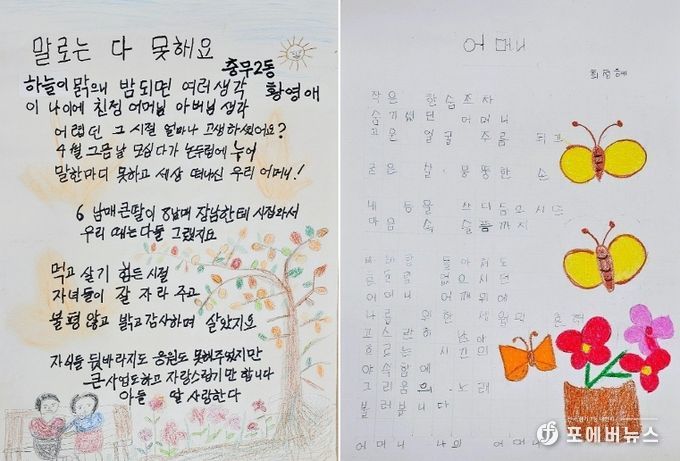 말로는 다 못해요
충무2동
황영애
하늘이 맑으니 밤되면 여러생각
이 나이에 친정 어머님 아버님 생각
어렵던 그 시절 얼마나 고생하셨어요?
4월 그믐날 모심다가 논두렁에 누어
말한마디 못하고 세상 떠나신 우리 어머니!
6 남매 큰딸이 8남매 장남한테 시집와서
우리 때는 다들 그랬지요
먹고 살기 힘든 시절
자녀들이 잘 자라 주고
불평 않고 밝고 감사하며 살았지요
자식들 뒷바라지도 응원도 못해주었지만
큰 사업도하고 자랑스럽기만 합니다
아들 딸 사랑한다
어머니
작은 한숨조차
숨기셨던 어머니
고운 얼굴 주름 되고
굳은 살 뭉툭한 손
내 등을 쓰다듬으시던
마음 속 슬픔까지
어머니 어깨위에
나를 위한 세월의 흔적
고스란히 남아
흐르는 시간의
야속함에
그리움의 노래
불러봅니다
어머니 나의 어머니
포에버뉴스